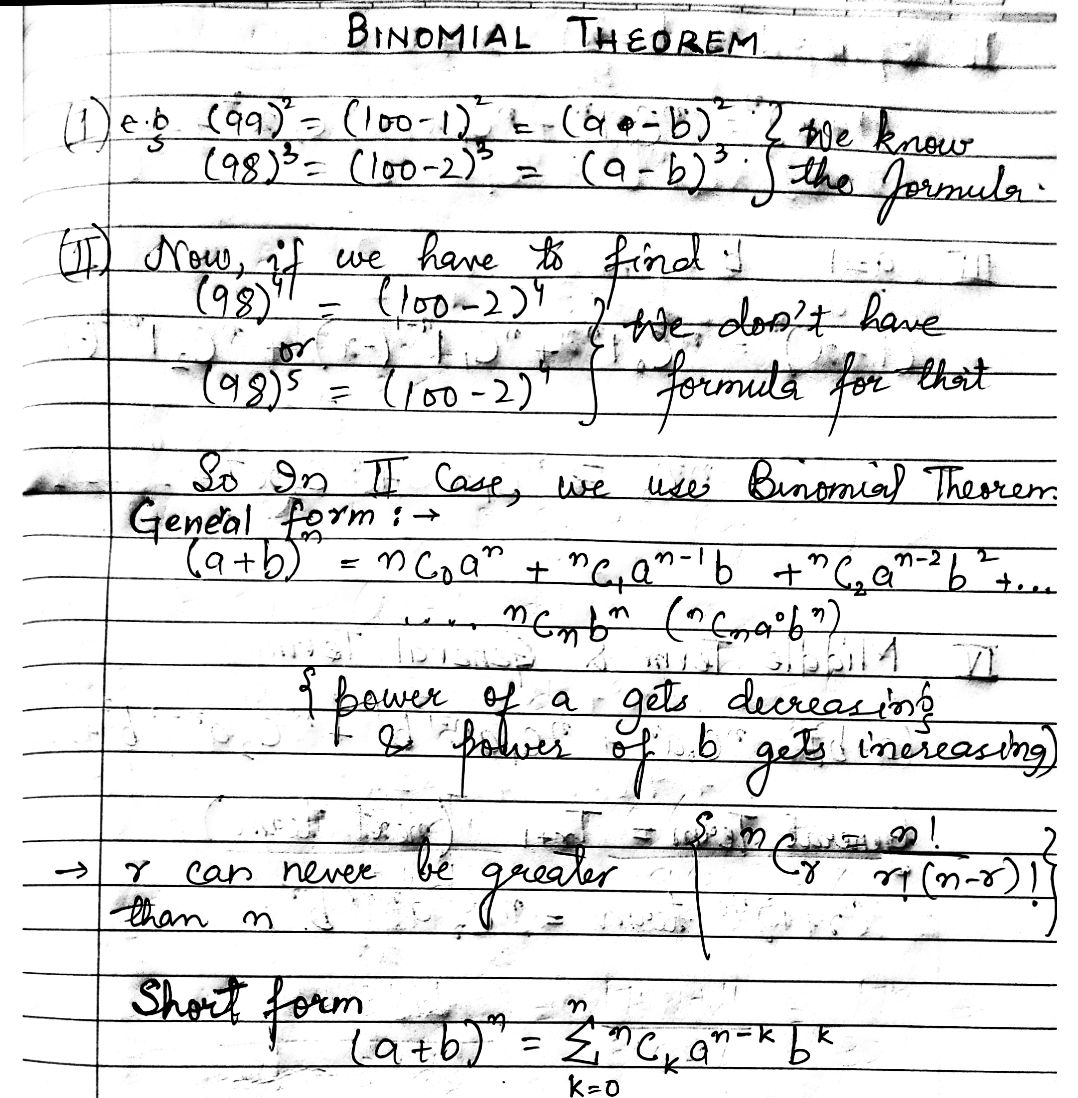 BINOMIAL THEOREM
(I) e.g (99)² = (100-1)² = (a-b)² } We know
(98)³ = (100-2)³ = (a-b)³. } the formula.
(II) Now, if we have to find :
(98)⁴ = (100-2)⁴ } We don't have
or
(98)⁵ = (100-2)⁴ } formula for that
So In II Case, we use Binomial Theorem.
General form : →
(a+b)ⁿ = nC₀aⁿ + ⁿC₁aⁿ⁻¹b + ⁿC₂aⁿ⁻²b² + ....
..... ⁿCₙbⁿ (ⁿCₙa⁰bⁿ)
{ power of a gets decreasing
& power of b gets increasing)
→ r can never be greater { ⁿCᵣ = n! / r!(n-r)! }
than n
Short form
(a+b)ⁿ = n Σ k=0 ⁿCₖ aⁿ⁻ᵏ bᵏ